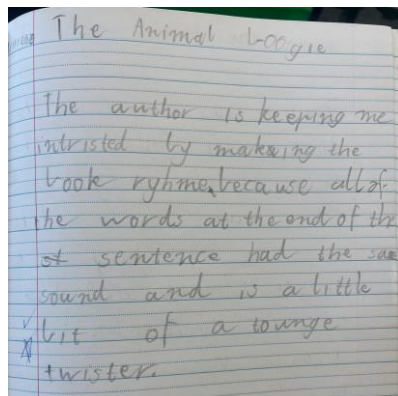 The Animal Boogie
The author is keeping me
intristed by makeing the
book ryhme, because all of
the words at the end of the
st sentence had the same
sound and is a little
bit of a tounge
twister.